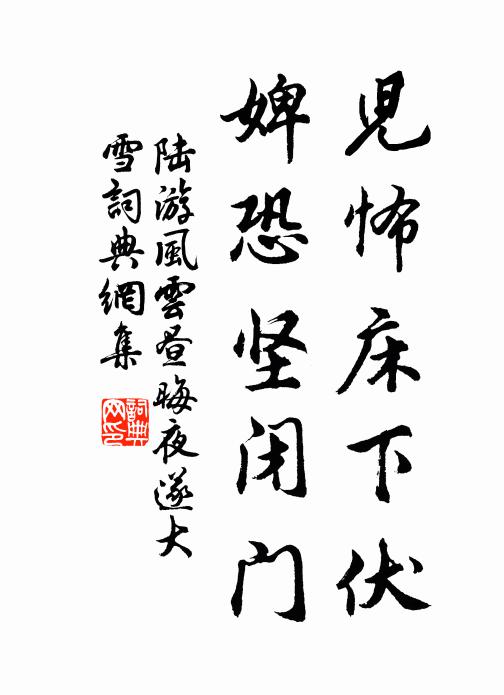 児怖床下伏
婢恐坚闭门
陆游风雲昼晦夜遂大
雪詞典網集
詞典网印